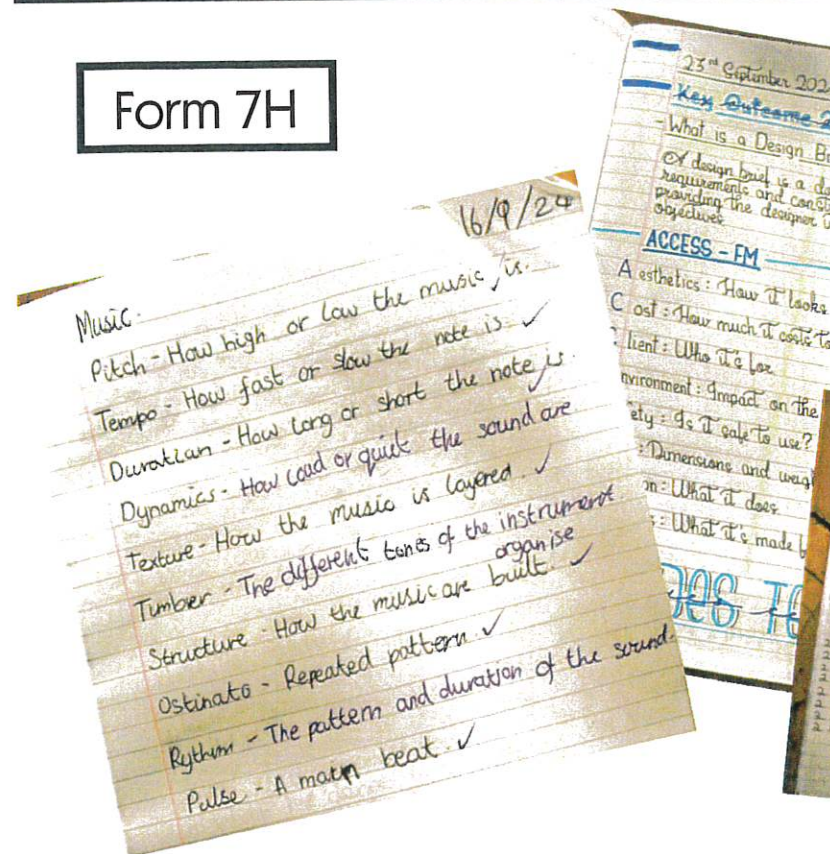 Form 7H
16/9/24
Music.
Pitch - How high or low the music is.
Tempo - How fast or slow the note is ✓
Duration - How long or short the note is.
Dynamics - How loud or quiet the sound are
Texture - How the music is layered. ✓
Timber - The different tones of the instrument
organise
Structure - How the music are built. ✓
Ostinato - Repeated pattern. ✓
Rythm - The pattern and duration of the sound.
Pulse - A main beat. ✓
23rd September 202
Key Outcome 2
- What is a Design Br
A design brief is a d
requirements and const
providing the designer
objectives
ACCESS - FM
Aesthetics : How it looks
Cost : How much it costs to
lient : Who it's for
nvironment : Impact on the
ety : Is it safe to use?
: Dimensions and weig
on : What it does
: What it's made